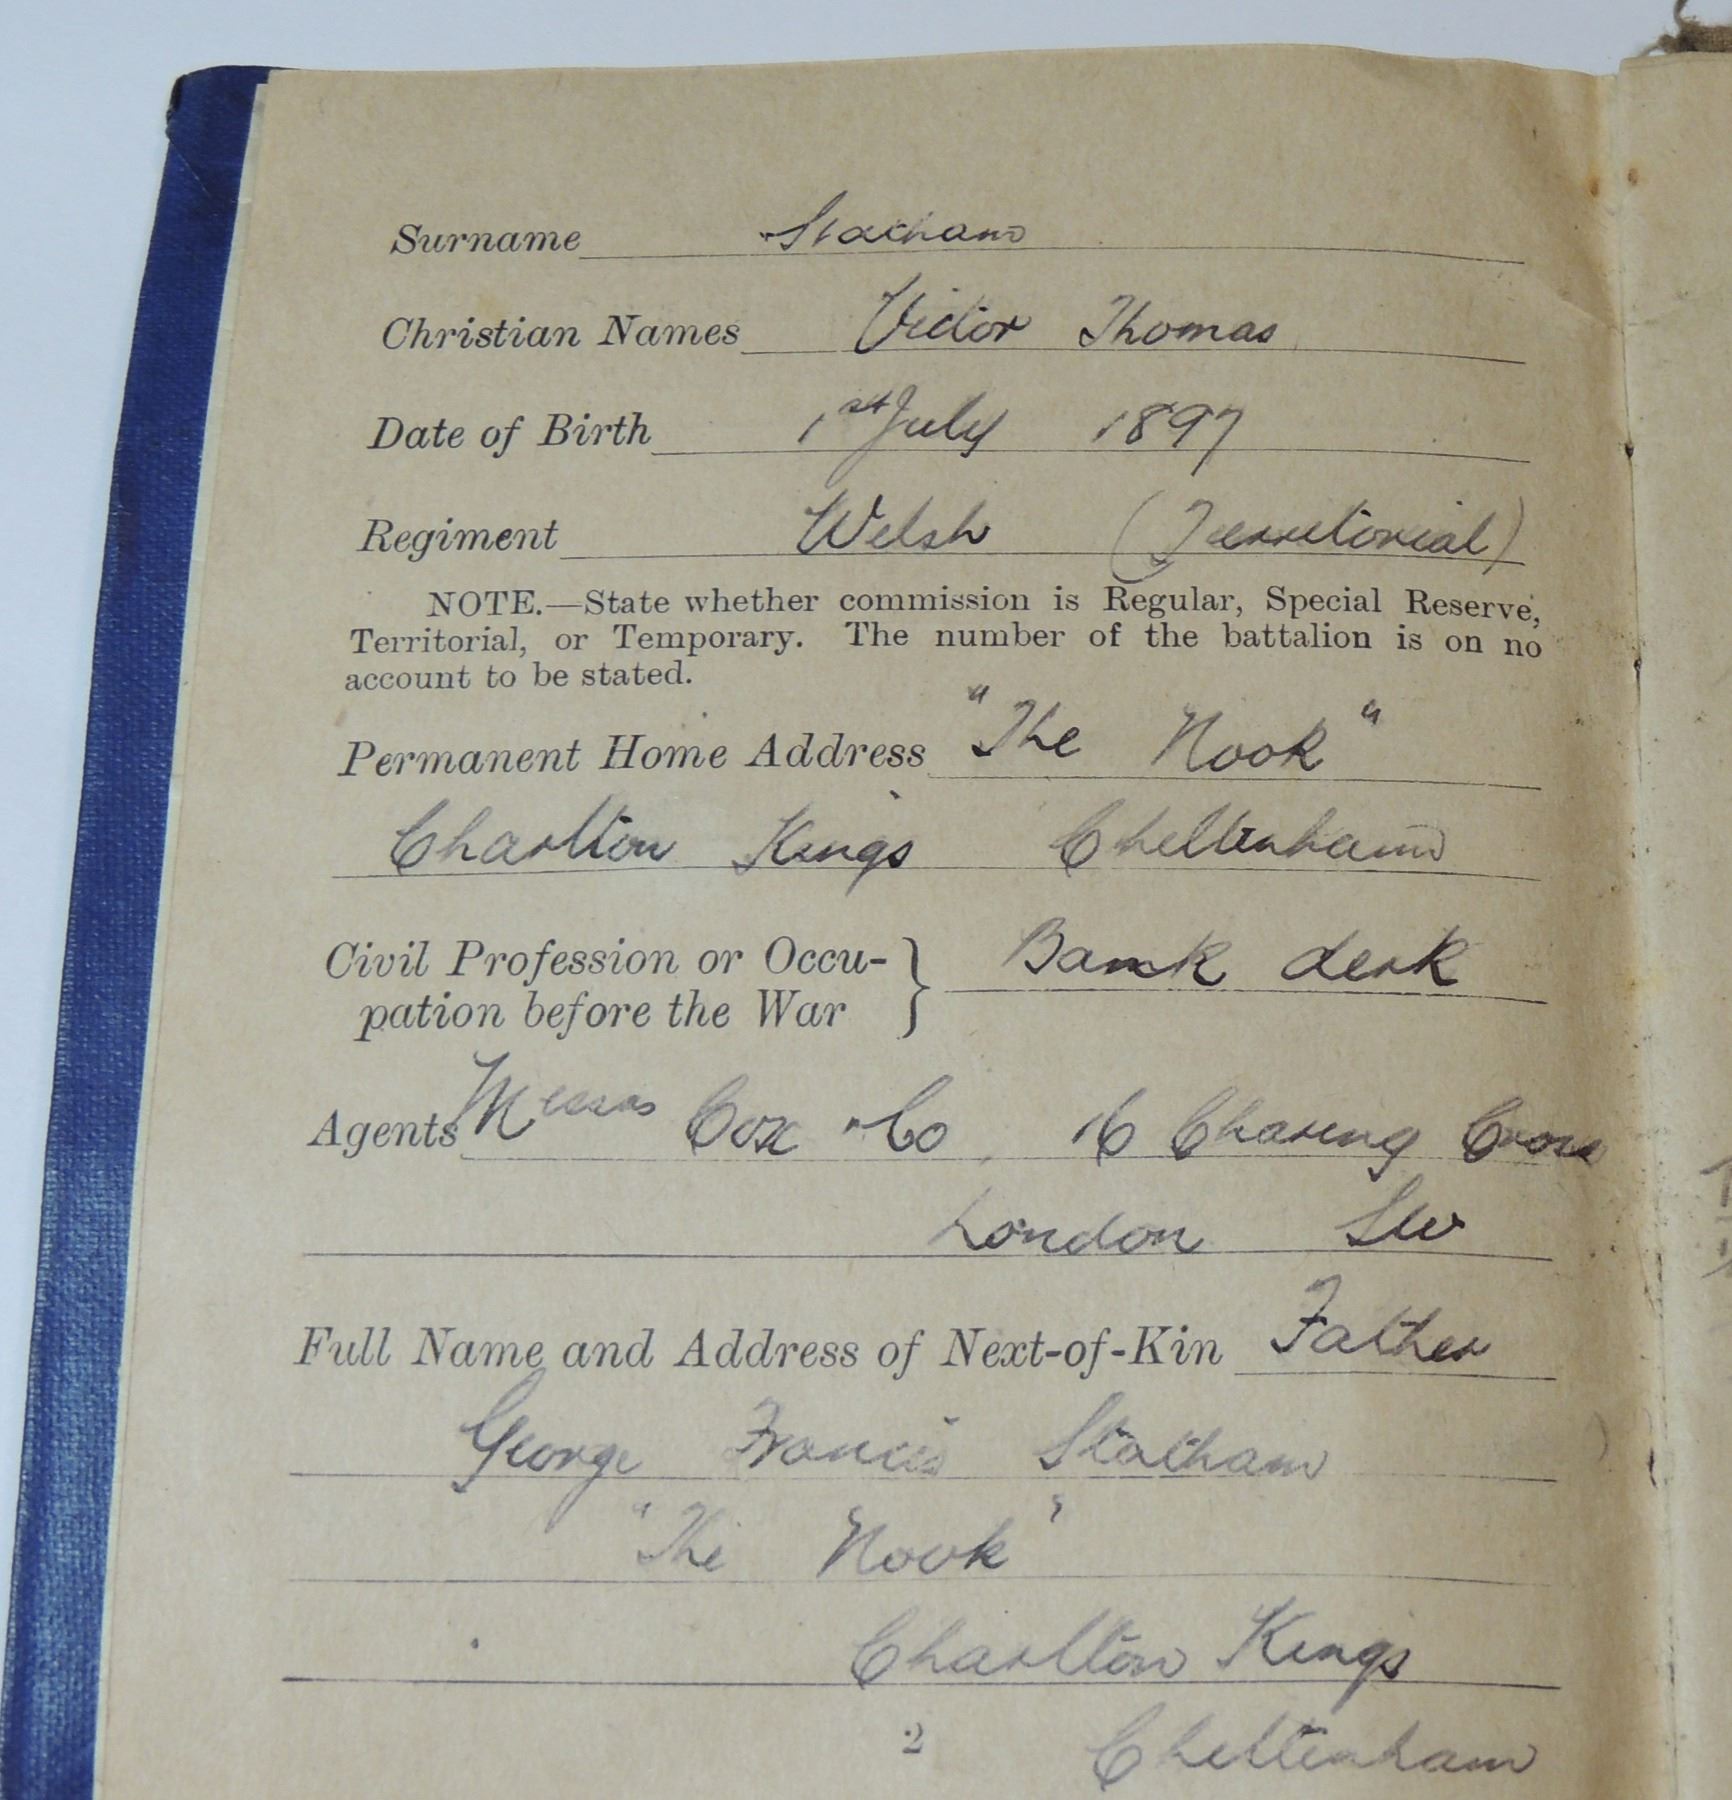 Surname Statham
Christian Names Victor Thomas
Date of Birth 1st July 1897
Regiment Welsh (Territorial)
NOTE.—State whether commission is Regular, Special Reserve,
Territorial, or Temporary. The number of the battalion is on no
account to be stated.
Permanent Home Address "The Nook"
Charlton Kings Cheltenham
Civil Profession or Occu-
pation before the War } Bank clerk
Agents Messrs Cox & Co, 16 Charing Cross
London SW
Full Name and Address of Next-of-Kin Father
George Francis Statham
"The Nook"
Charlton Kings
2 Cheltenham